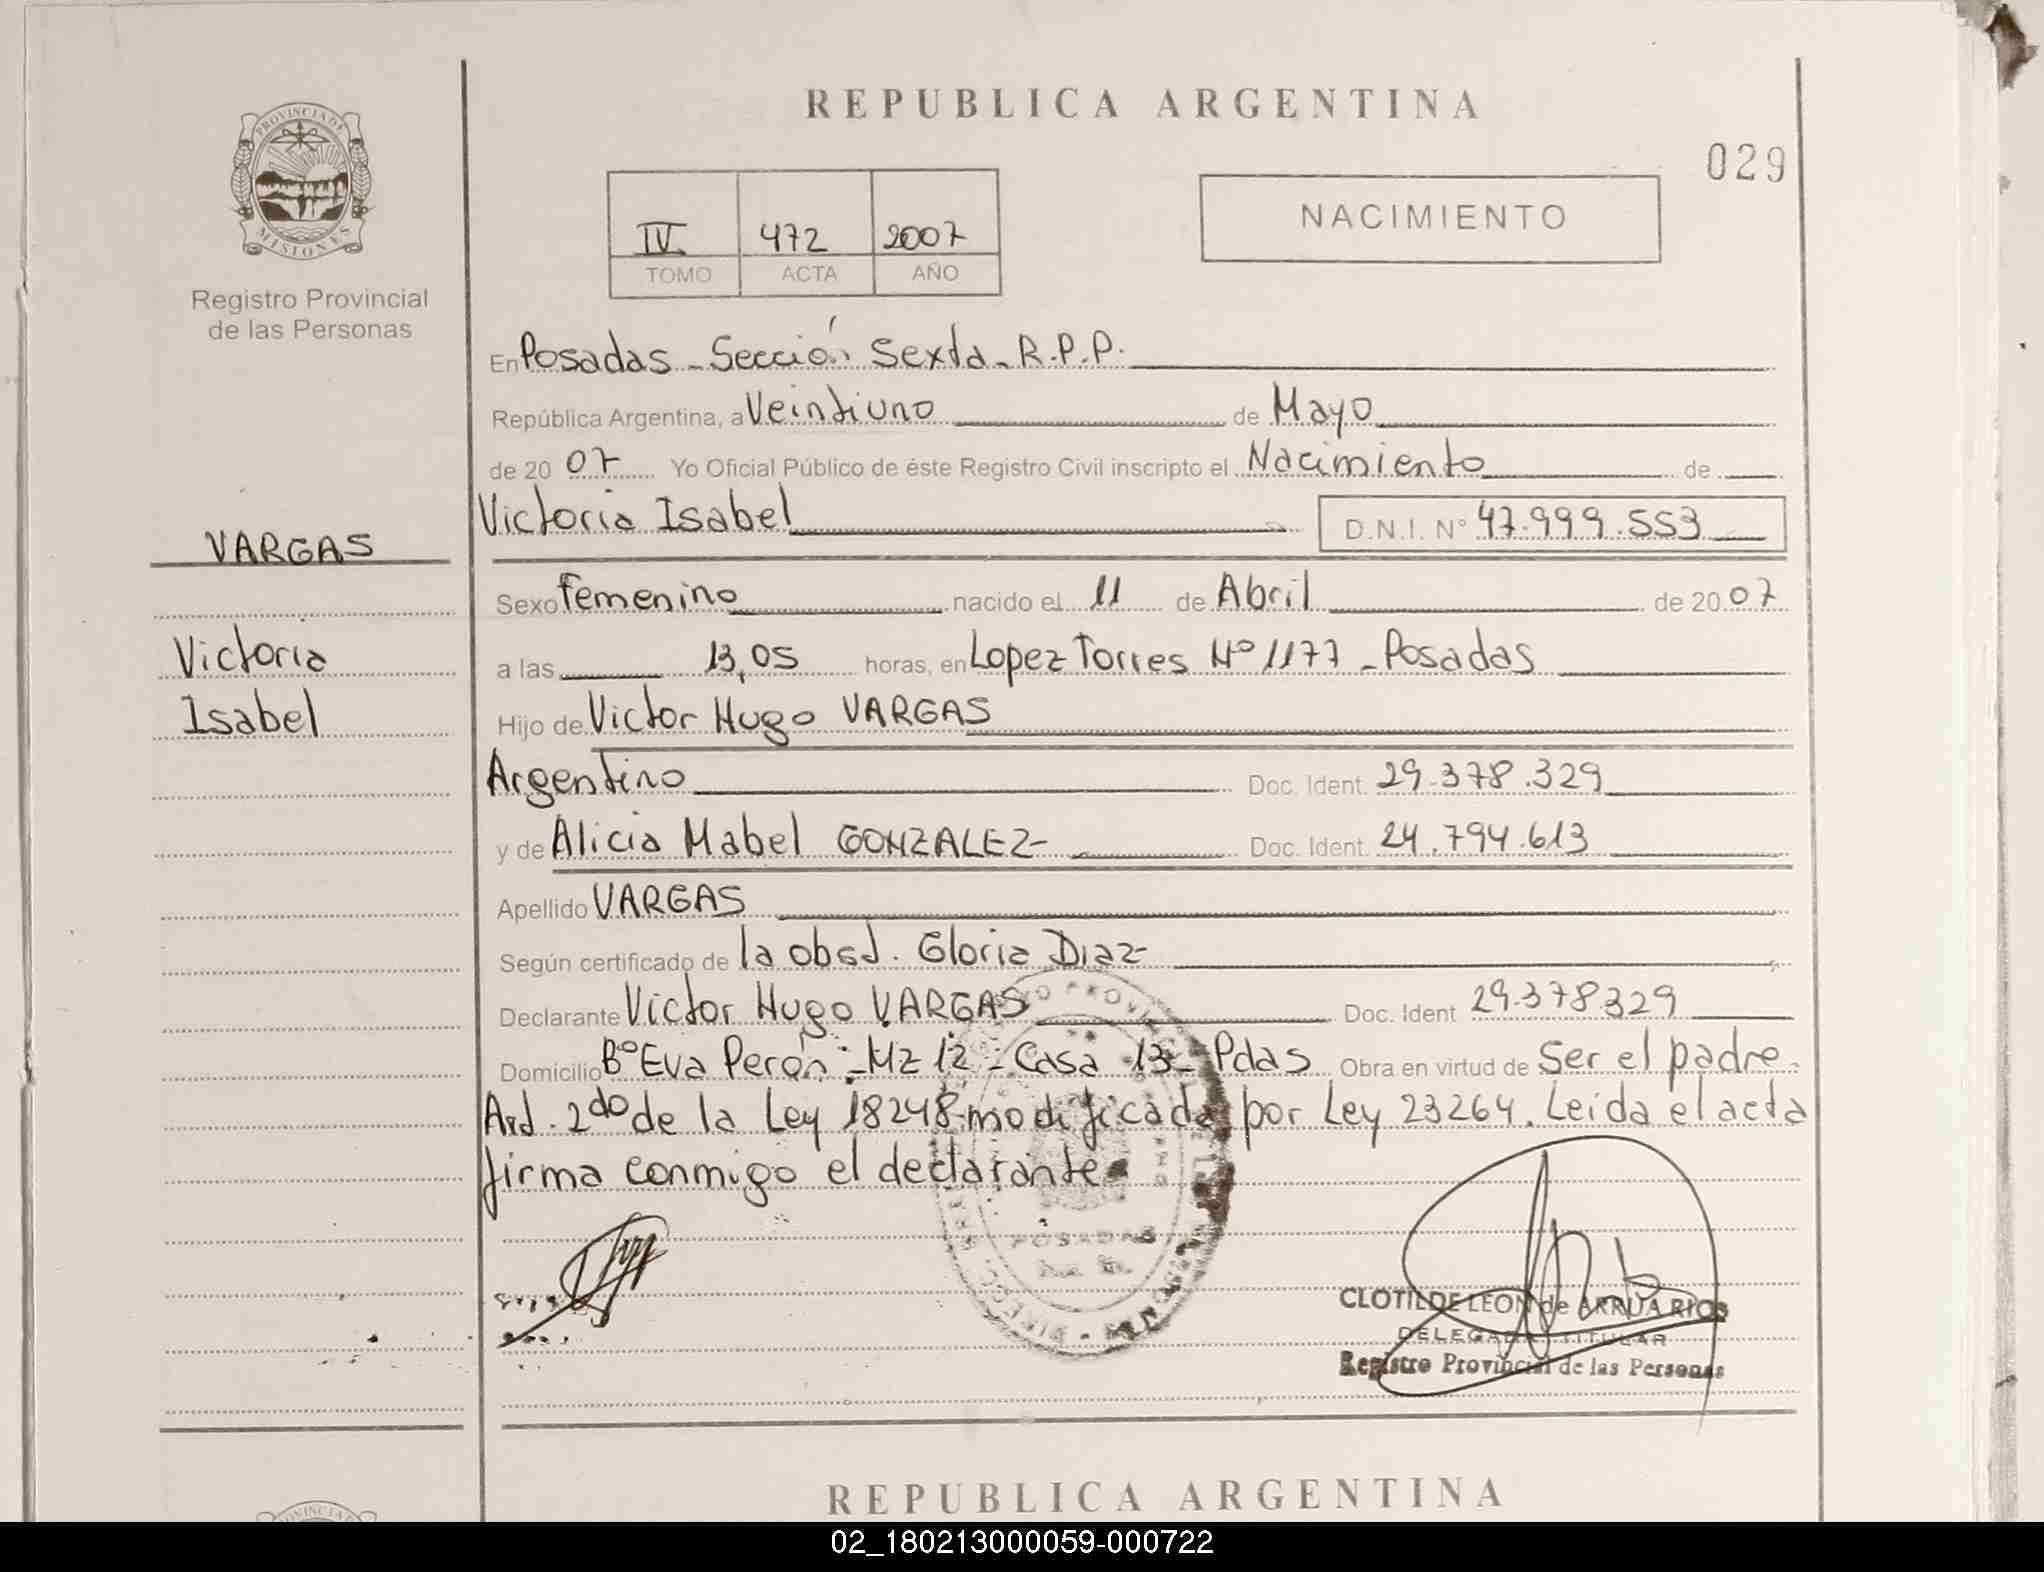 REPUBLICA ARGENTINA
029
PROVINCIA DE
MISIONES
Registro Provincial
de las Personas
IV 472 2007
TOMO ACTA AÑO
NACIMIENTO
En Posadas - Sección Sexta - R.P.P.
República Argentina, a Veintiuno de Mayo
de 20 07 Yo Oficial Público de éste Registro Civil inscripto el Nacimiento de
Victoria Isabel D.N.I. Nº 47.999.553
VARGAS
Victoria
Isabel
Sexo femenino nacido el 11 de Abril de 20 07
a las 13,05 horas, en Lopez Torres Nº 1177 - Posadas
Hijo de Victor Hugo VARGAS
Argentino Doc. Ident. 29.378.329
y de Alicia Mabel GONZALEZ Doc. Ident. 24.794.613
Apellido VARGAS
Según certificado de la obst. Gloria Diaz
Declarante Victor Hugo VARGAS Doc. Ident 29.378329
Domicilio Bº Eva Perón - Mz 12 - Casa 13 - Pdas Obra en virtud de Ser el padre.
Art. 2do de la Ley 18248 modificada por Ley 23264. Leida el acta
firma conmigo el declarante
POSADAS
CLOTILDE LEON de ARRUA RIOS
DELEGADA TITULAR
Registro Provincial de las Personas
REPUBLICA ARGENTINA
02_180213000059-000722